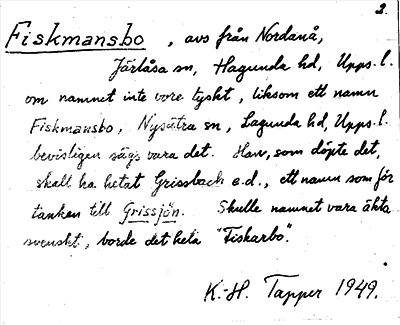 2.
Fiskmansbo, avs från Nordanå,
Järlåsa sn, Hagunda hd, Upps. l.
om namnet inte vore tyskt, liksom ett namn
Fiskmansbo, Nysätra sn, Lagunda hd, Upps. l.
bevisligen säges vara det. Han, som döpte det,
skall ha hetat Grissbach e.d., ett namn som för
tanken till Grissjön. Skulle namnet vara äkta
svenskt, borde det heta "Fiskarbo".
K.-H. Tapper 1949.